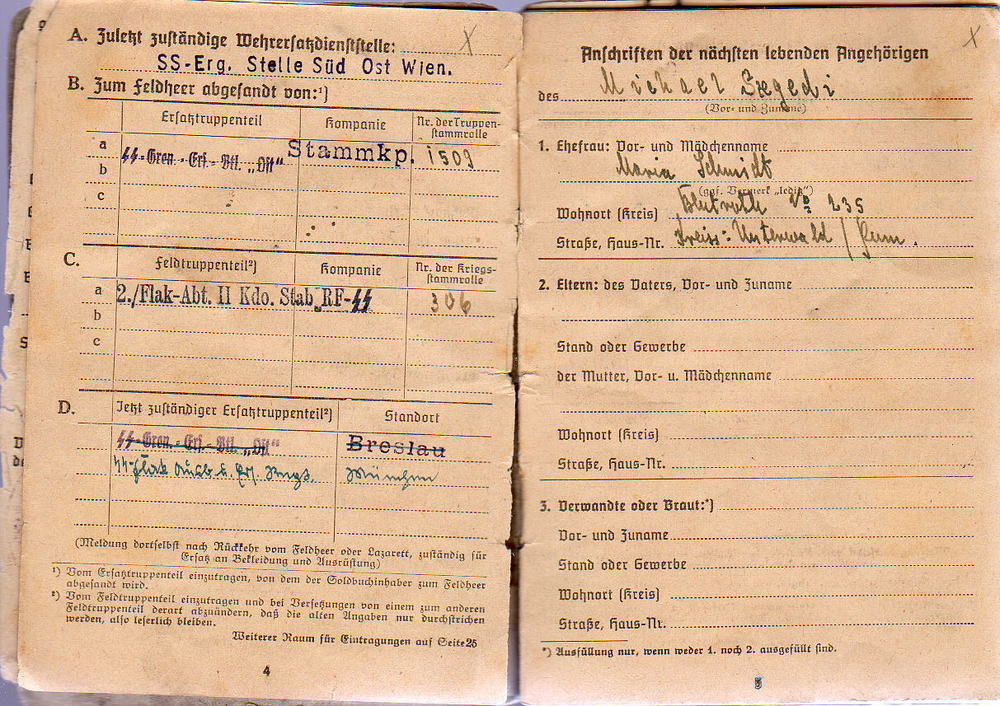 A. Zuletzt zuständige Wehrersatzdienststelle:
SS-Erg. Stelle Süd Ost Wien.
B. Zum Feldheer abgesandt von:¹)
Ersatztruppenteil Kompanie Nr. der Truppen-
stammrolle
a ᛋᛋ-Gren.-Ers.-Btl. „Ost“ Stammkp. 1509
b
c
C. Feldtruppenteil²) Kompanie Nr. der Kriegs-
stammrolle
a 2./Flak-Abt. II Kdo. Stab RF-ᛋᛋ 306
b
c
D. Jetzt zuständiger Ersatztruppenteil²) Standort
ᛋᛋ-Gren.-Ers.-Btl. „Ost“ Breslau
ᛋᛋ-Flak Ausb. u. Ers. Rngt. München
(Meldung dortselbst nach Rückkehr vom Feldheer oder Lazarett, zuständig für
Ersatz an Bekleidung und Ausrüstung)
¹) Vom Ersatztruppenteil einzutragen, von dem der Soldbuchinhaber zum Feldheer
abgesandt wird.
²) Vom Feldtruppenteil einzutragen und bei Versetzungen von einem zum anderen
Feldtruppenteil derart abzuändern, daß die alten Angaben nur durchstrichen
werden, also leserlich bleiben.
Weiterer Raum für Eintragungen auf Seite 25
4
Anschriften der nächsten lebenden Angehörigen
des Michael Szegedi
(Vor- und Zuname)
1. Ehefrau: Vor- und Mädchenname
Maria Schmidt
(ggf. Vermerk „ledig“)
Wohnort (Kreis) Blutroth No 235
Straße, Haus-Nr. Kreis: Unterwald / Rum.
2. Eltern: des Vaters, Vor- und Zuname
Stand oder Gewerbe
der Mutter, Vor- u. Mädchenname
Wohnort (Kreis)
Straße, Haus-Nr.
3. Verwandte oder Braut:*)
Vor- und Zuname
Stand oder Gewerbe
Wohnort (Kreis)
Straße, Haus-Nr.
*) Ausfüllung nur, wenn weder 1. noch 2. ausgefüllt sind.
5